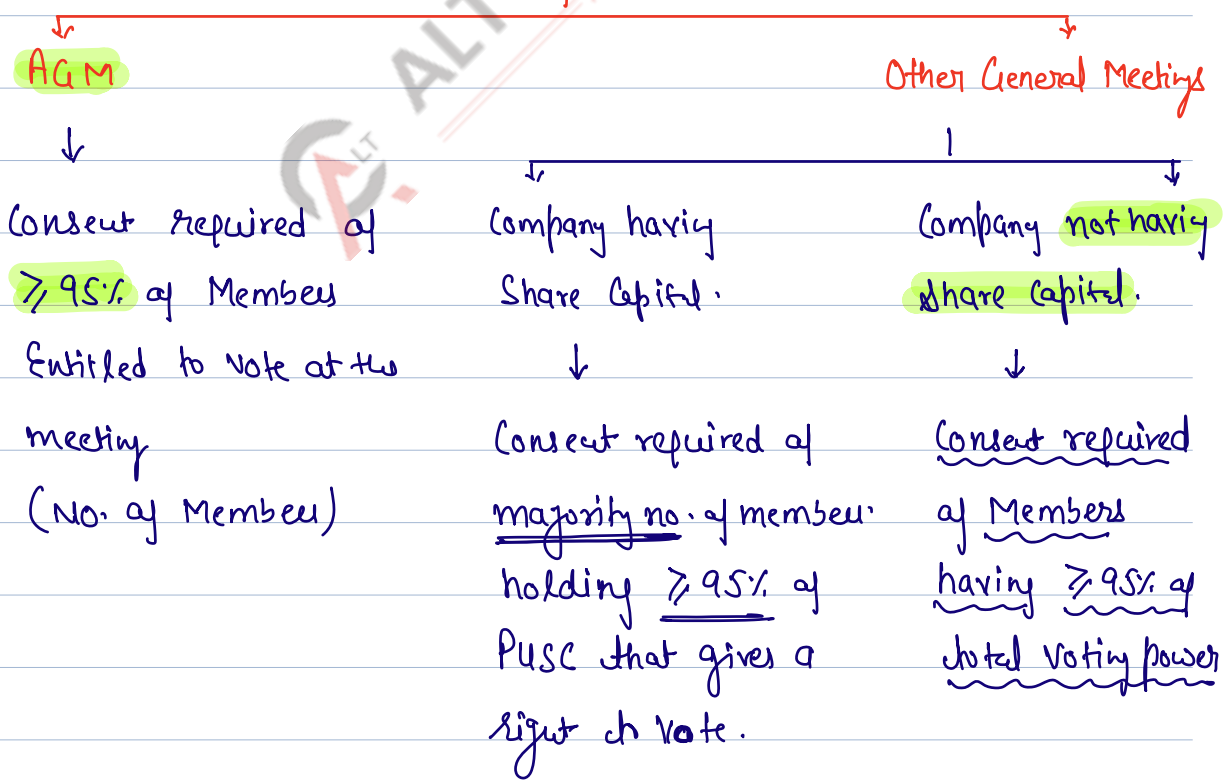 AGM
Other General Meetings
Consent required of
≥ 95% of Members
Entitled to vote at the
meeting
(No. of Members)
Company having
Share Capital.
↓
Consent required of
majority no. of members
holding ≥ 95% of
PUSC that gives a
right to Vote.
Company not having
Share Capital.
↓
Consent required
of Members
having ≥ 95% of
total Voting power
ALT
LT